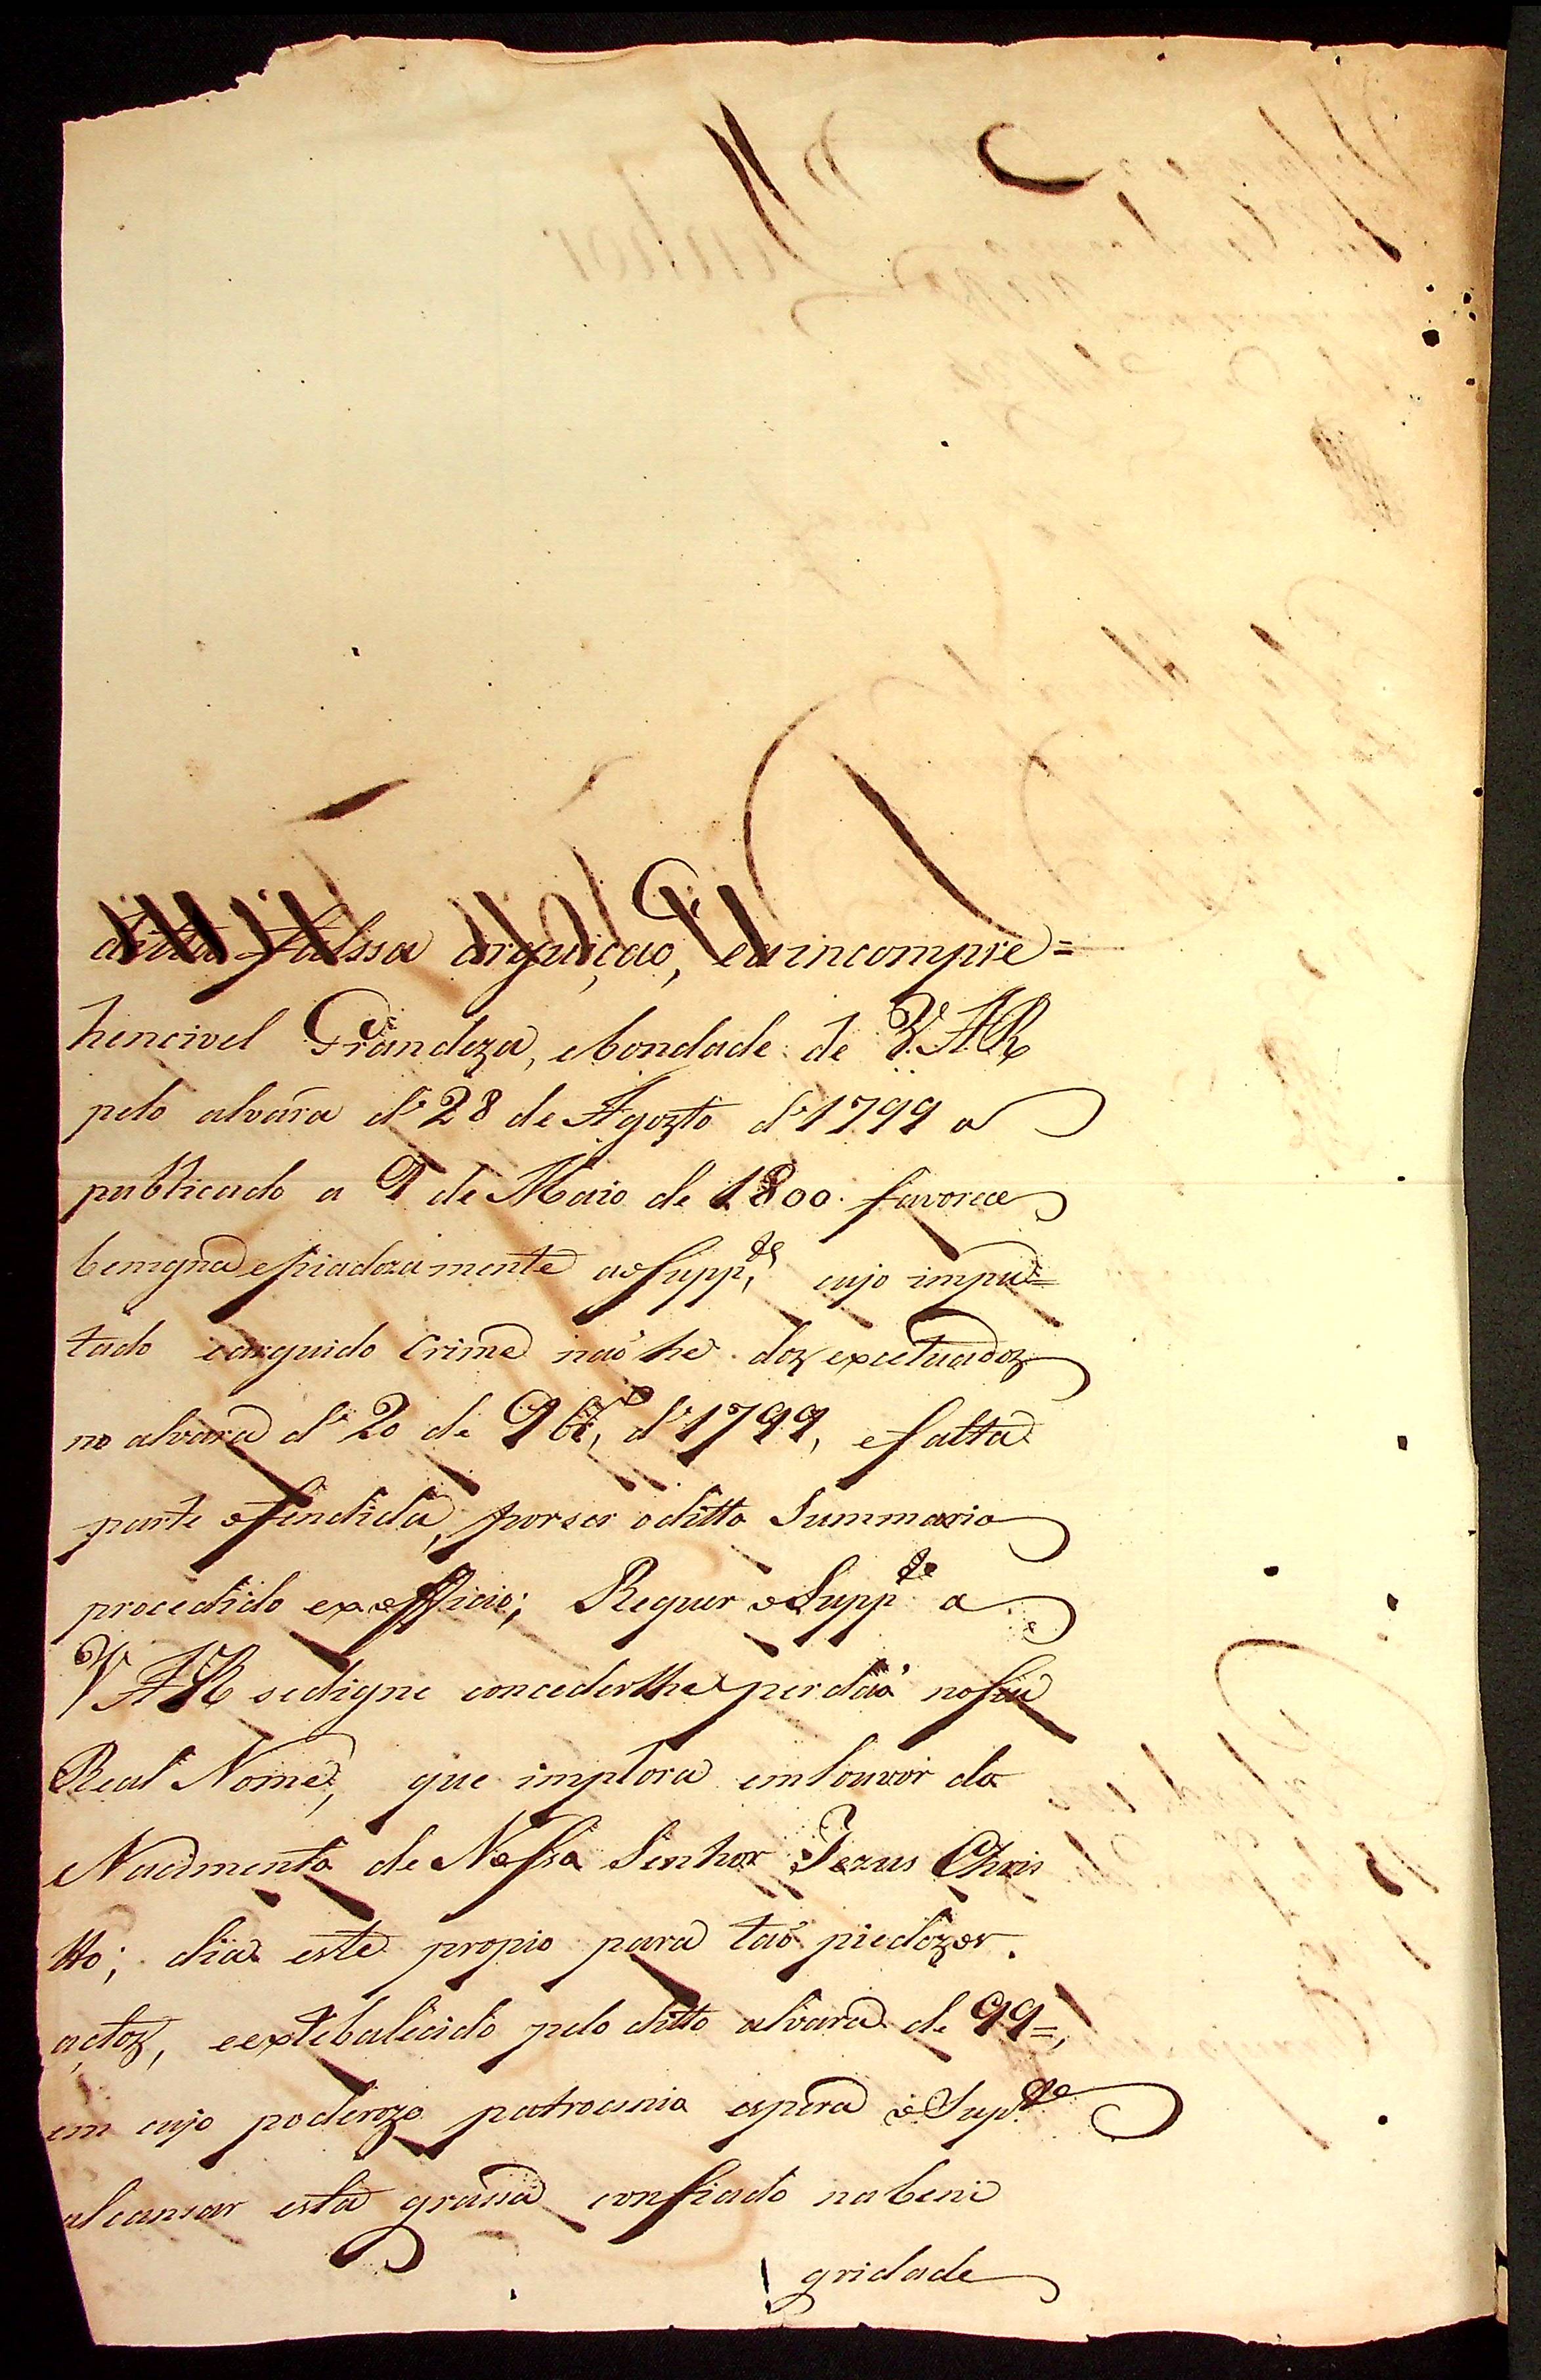 ditta falssa arguiçaõ, eaincompre=
hencivel Grandeza, ebondade de V.A.R
pelo alvára d' 28 de Agozto d' 1799 a
publicado a 9 de Maio de 1800. favorece
benigna epiadozamente aoSupp.te cujo impu=
tado earguido Crime naõ he doz excetuadoz
no alvara d' 20 de 9br.o d' 1799, efalta
parte ofendida, porser oditto Summario
procedido exofficio; Requer oSupp.te a
VAR sedigne concederlhe perdaõ noSeu
Real Nome, que implora emlouvor do
Nacimento de Nosso Senhor Jezus Chris
tto; dia este propio para taõ piedozos
actoz, eextebalicido pelo ditto alvara de 99=,
em cujo poderozo patrocinio espera oSup.te
alcansar esta grassa confiado nabeni
gnidade